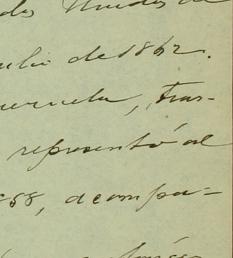 los Unidos de
ulio de 1862.
uerela, Tras-
representó al
58, acompa-